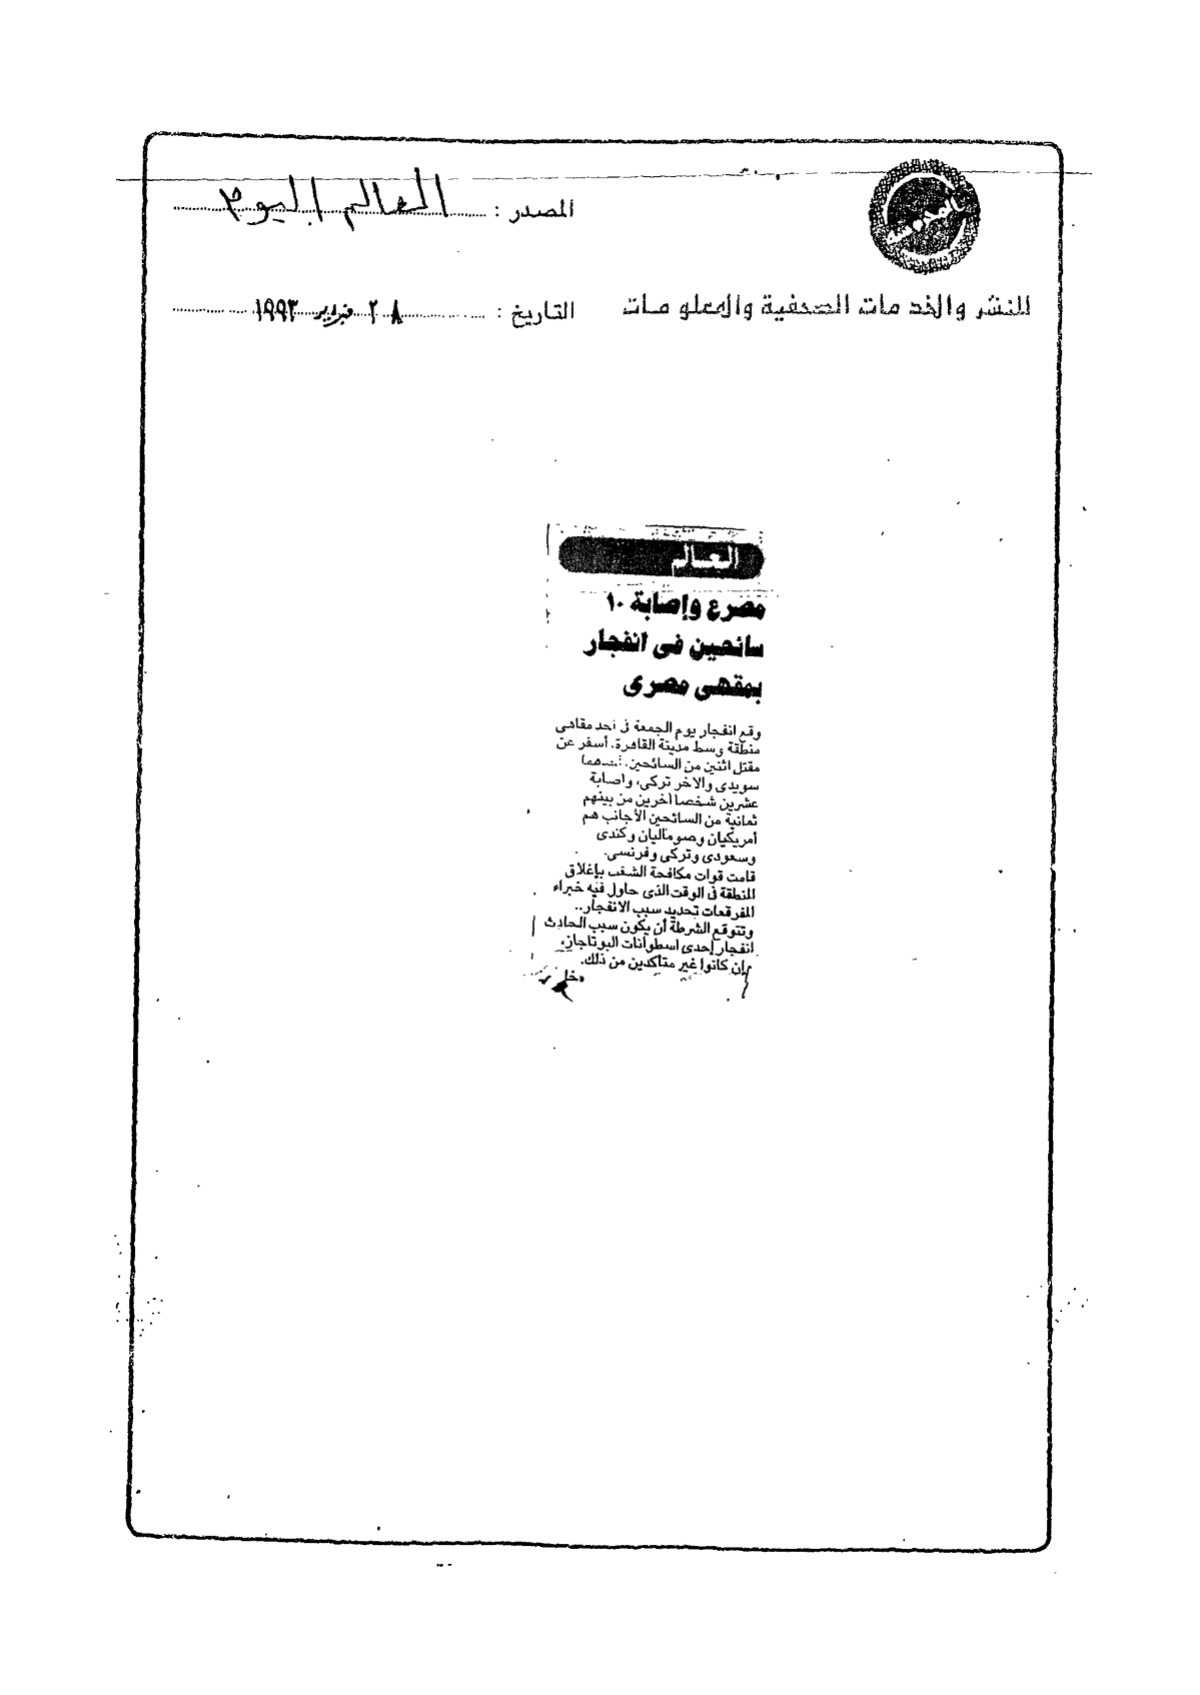 المصدر : العالم اليوم
للنشر والخدمات الصحفية والمعلومات
التاريخ : ٢٨ فبراير ١٩٩٣
العالم
مصرع وإصابة ١٠
سائحين فى انفجار
بمقهى مصرى
وقع انفجار يوم الجمعة فى أحد مقاهى
منطقة وسط مدينة القاهرة، أسفر عن
مقتل اثنين من السائحين، أحدهما
سويدى والآخر تركى، وإصابة
عشرين شخصا آخرين من بينهم
ثمانية من السائحين الأجانب هم
أمريكيان وصوماليان وكندى
وسعودى وتركى وفرنسى.
قامت قوات مكافحة الشغب بإغلاق
المنطقة فى الوقت الذى حاول فيه خبراء
المفرقعات تحديد سبب الانفجار..
وتتوقع الشرطة أن يكون سبب الحادث
انفجار إحدى اسطوانات البوتاجاز،
وإن كانوا غير متأكدين من ذلك.